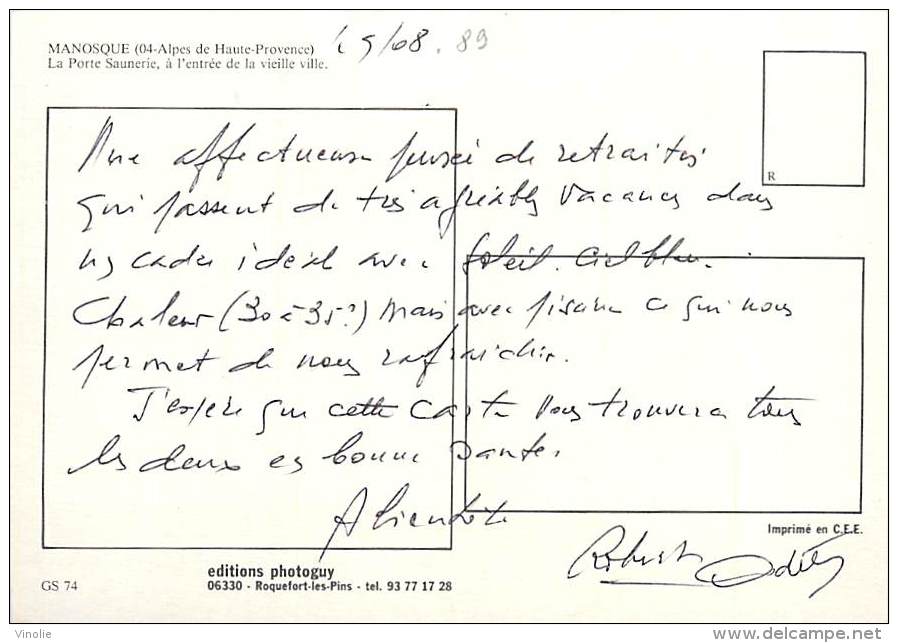 MANOSQUE (04-Alpes de Haute-Provence) 25/08.89
La Porte Saunerie, à l'entrée de la vieille ville.
R
Une affectueuse pensée de retraités
qui passent de très agréables vacances dans
un cadre idéal avec soleil. ciel bleu.
Chaleur (30 à 35°) mais avec piscine ce qui nous
permet de nous rafraichir.
J'espère que cette carte vous trouvera tous
les deux en bonne santé.
A bientôt
Robert Odile
Imprimé en C.E.E.
editions photoguy
GS 74 06330 - Roquefort-les-Pins - tel. 93 77 17 28
Vinolie delcampe.net